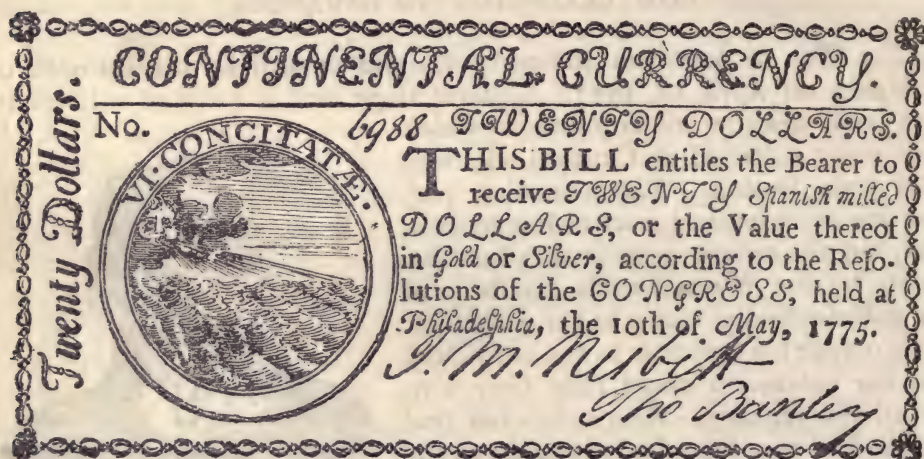 CONTINENTAL CURRENCY.
Twenty Dollars.
No. 6988 TWENTY DOLLARS.
VI·CONCITATÆ·
THIS BILL entitles the Bearer to
receive TWENTY Spanish milled
DOLLARS, or the Value thereof
in Gold or Silver, according to the Reſo-
lutions of the CONGRESS, held at
Philadelphia, the 10th of May, 1775.
J. M. Nesbitt
Tho